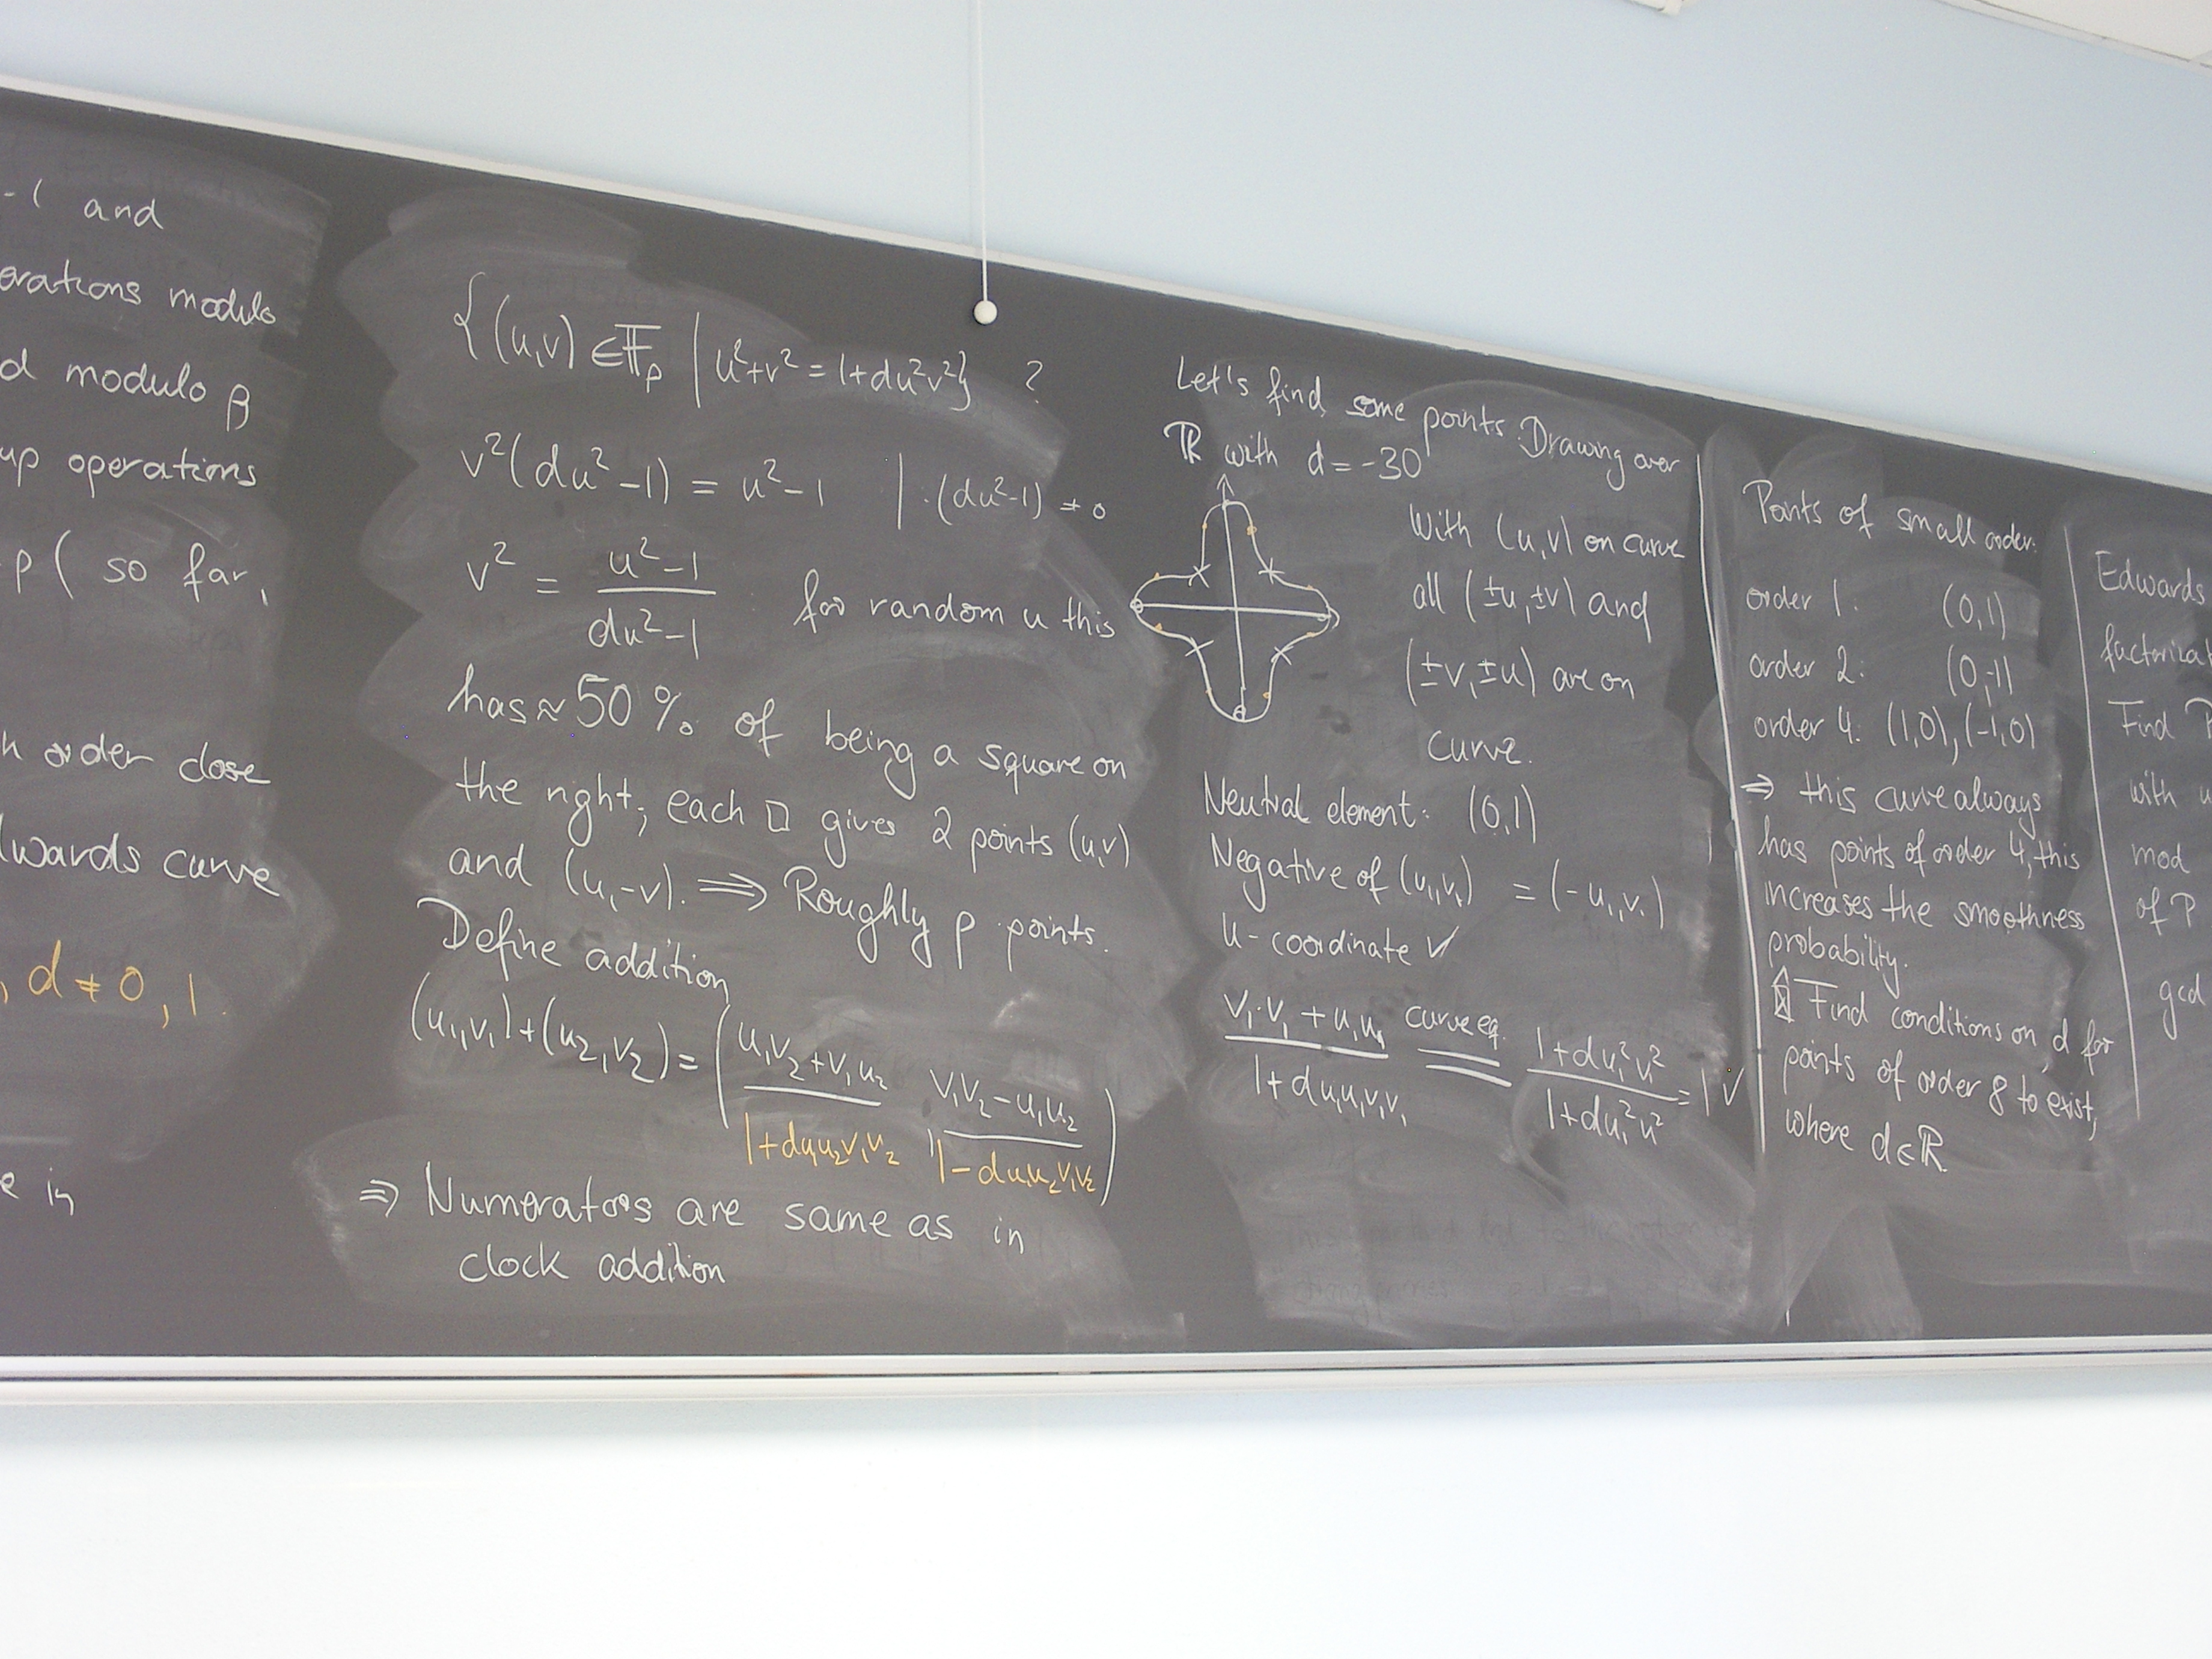 -1 and
erations modulo
d modulo β
up operations
p ( so far,
h order close
dwards curve
, d ≠ 0, 1.
e in
{(u,v) ∈ 𝔽p | u²+v² = 1+du²v²} ?
v²(du²-1) = u²-1 | ·(du²-1) ≠ 0
v² = (u²-1)/(du²-1) for random u this
has ≈ 50 % of being a square on
the right; each □ gives 2 points (u,v)
and (u,-v). ⇒ Roughly p points.
Define addition
(u₁,v₁)+(u₂,v₂) = ((u₁v₂+v₁u₂)/(1+du₁u₂v₁v₂), (v₁v₂-u₁u₂)/(1-du₁u₂v₁v₂))
⇒ Numerators are same as in
clock addition
Let's find some points. Drawing over
ℝ with d = -30
With (u,v) on curve
all (±u,±v) and
(±v,±u) are on
curve.
Neutral element: (0,1)
Negative of (u₁,v₁) = (-u₁,v₁)
u-coordinate ✓
(v₁·v₁+u₁u₁)/(1+du₁u₁v₁v₁) curve eq. = (1+du₁²v₁²)/(1+du₁²u²) = 1 ✓
Points of small order:
order 1: (0,1)
order 2: (0,-1)
order 4: (1,0), (-1,0)
⇒ this curve always
has points of order 4, this
increases the smoothness
probability.
Find conditions on d for
points of order 8 to exist,
where d∈ℝ.
Edwards
factorizat
Find P
with u
mod
of P
gcd